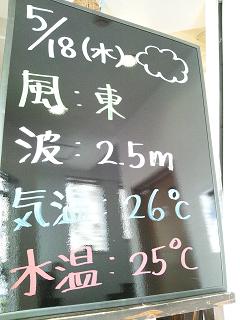 5/18(水)
風:東
波:2.5m
気温:26℃
水温:25℃